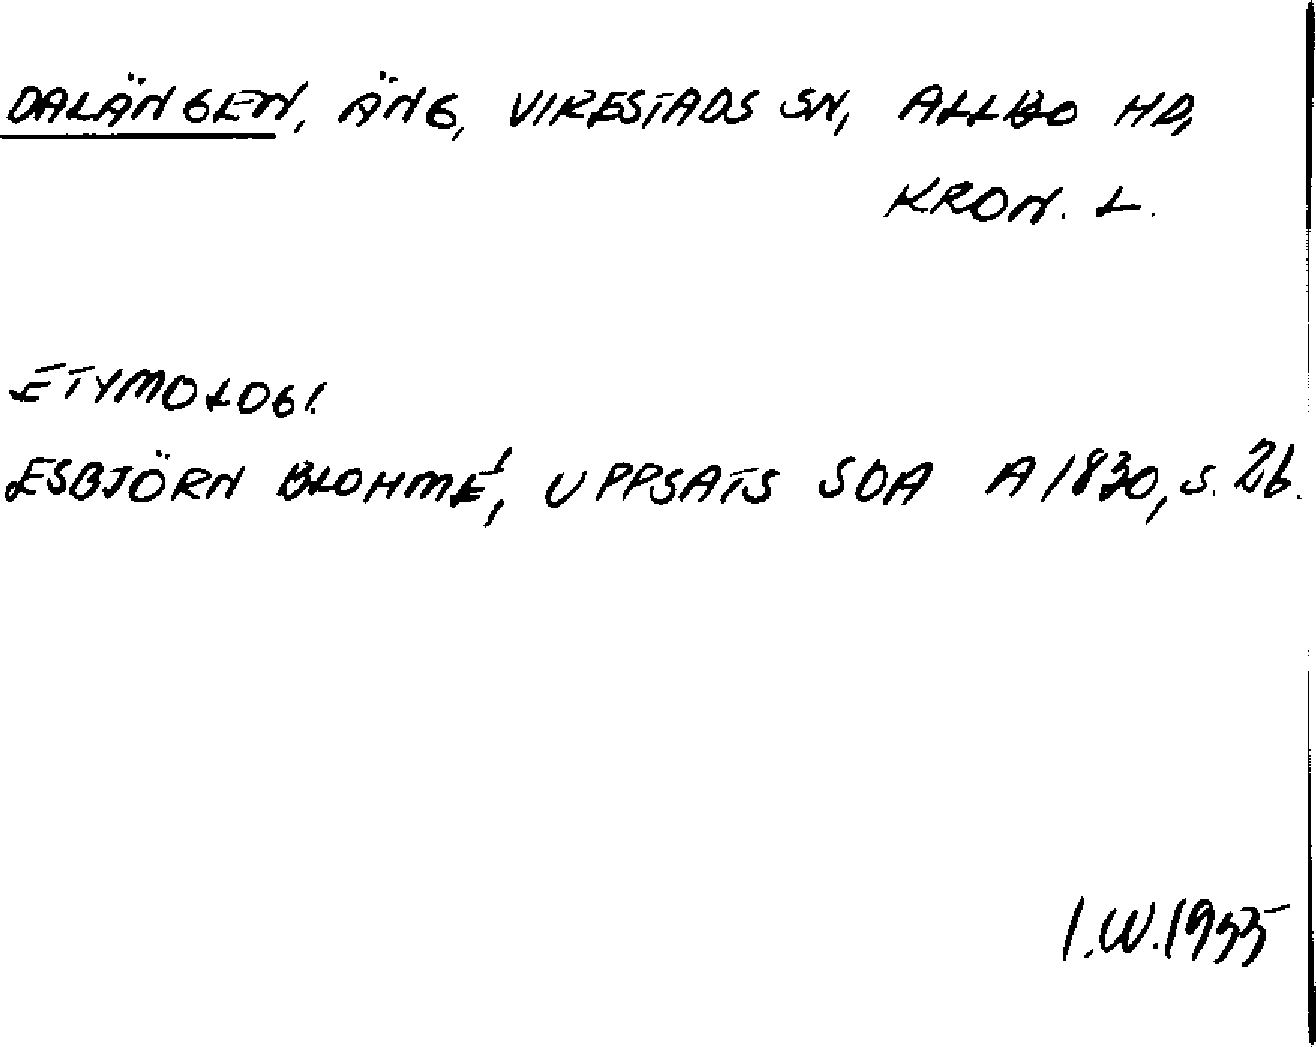 DALÄNGEN, ÄNG, VIRESTADS SN, ALLBO HD,
KRON. L.
ETYMOLOGI.
ESBJÖRN BLOHMÉ, UPPSATS SOA A 1830, s. 26.
I.W. 1955